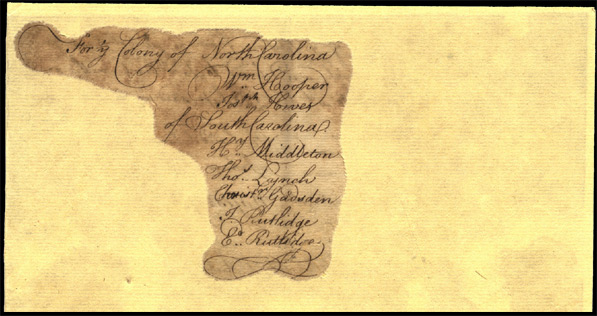 For ye Colony of North Carolina
Wm. Hooper
Josph Hewes
of South Carolina
Hy. Middleton
Thos. Lynch
Christr. Gadsden
J Rutlidge
Ed. Rutlidge